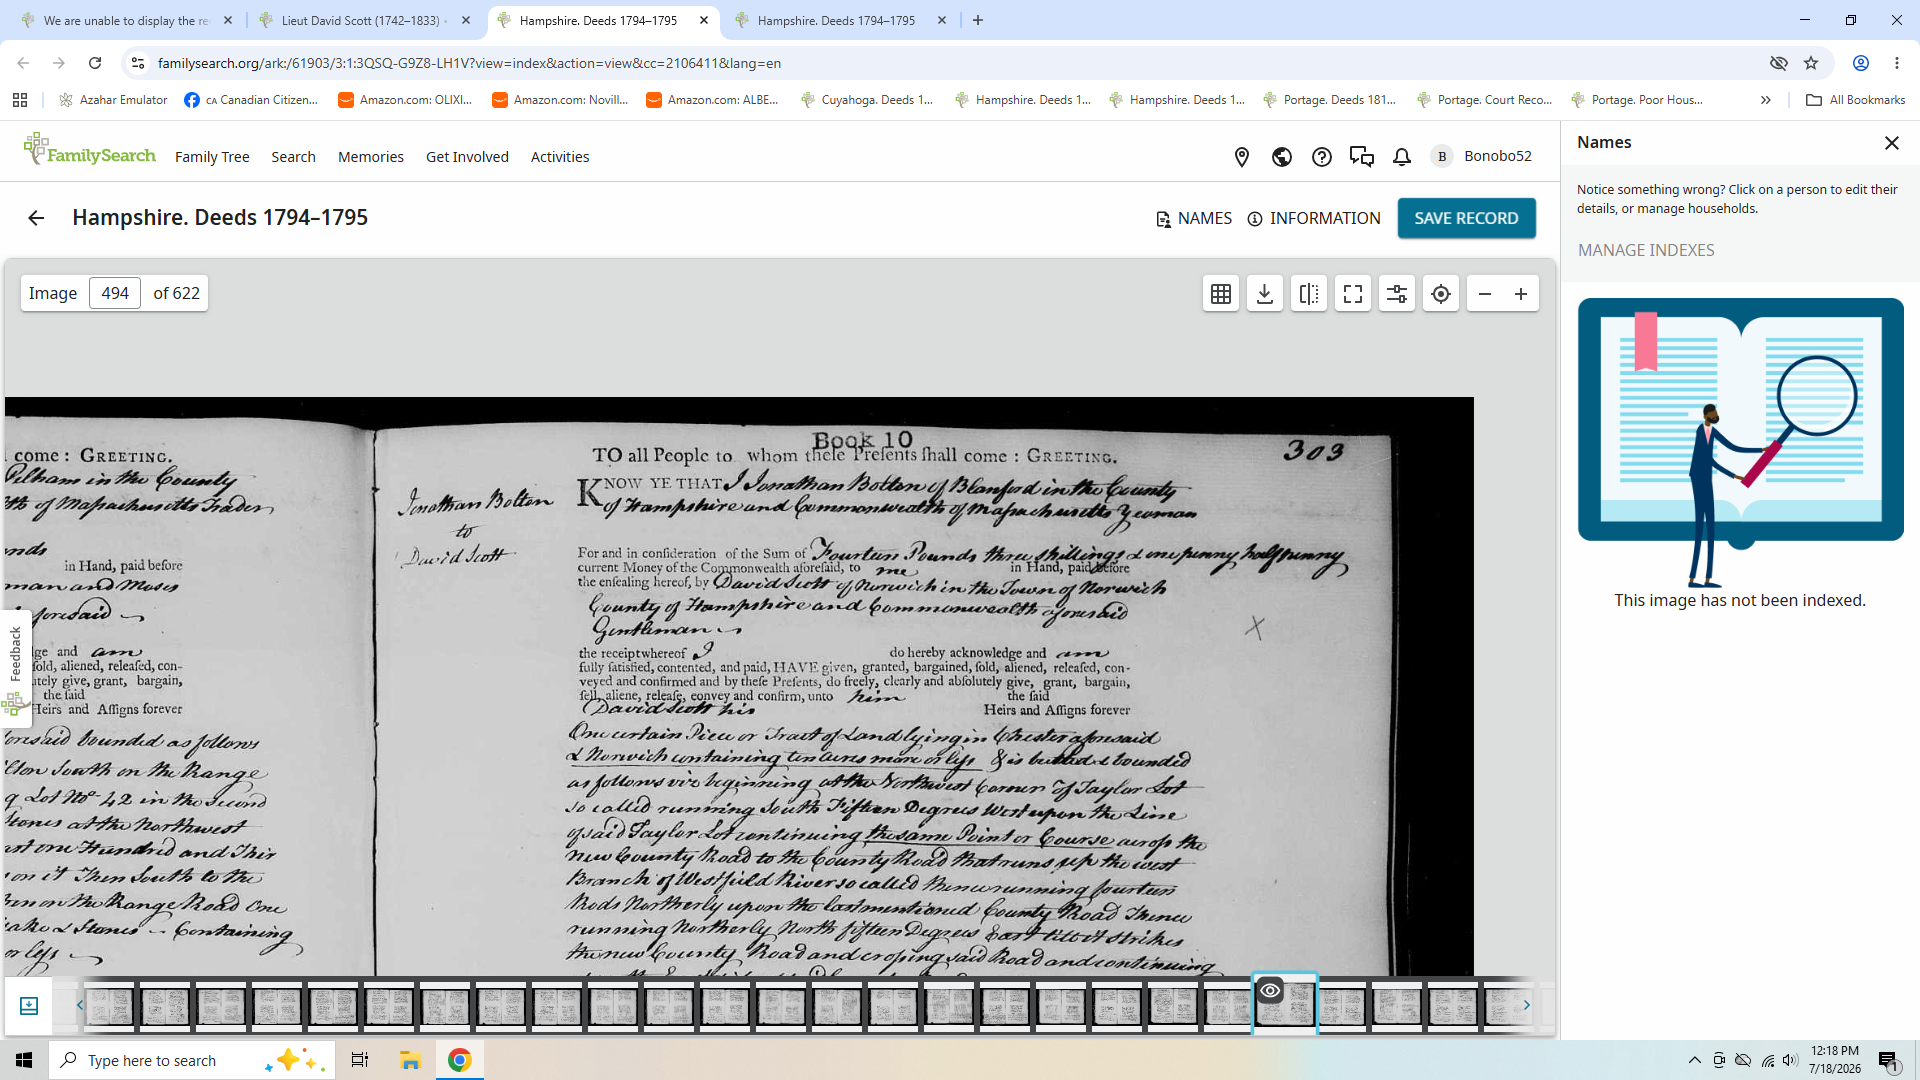 We are unable to display the re
Lieut David Scott (1742–1833) ·
Hampshire. Deeds 1794–1795
Hampshire. Deeds 1794–1795
familysearch.org/ark:/61903/3:1:3QSQ-G9Z8-LH1V?view=index&action=view&cc=2106411&lang=en
Azahar Emulator
CA Canadian Citizen...
Amazon.com: OLIXI...
Amazon.com: Novill...
Amazon.com: ALBE...
Cuyahoga. Deeds 1...
Hampshire. Deeds 1...
Hampshire. Deeds 1...
Portage. Deeds 181...
Portage. Court Reco...
Portage. Poor Hous...
All Bookmarks
FamilySearch
Family Tree
Search
Memories
Get Involved
Activities
B
Bonobo52
Hampshire. Deeds 1794–1795
NAMES
INFORMATION
SAVE RECORD
Image 494 of 622
come : GREETING.
Pelham in the County
of Massachusetts Trader
in Hand, paid before
man and Moses
aforesaid
ge and am
sold, aliened, released, con-
utely give, grant, bargain,
the said
Heirs and Assigns forever
oresaid bounded as follows
South on the Range
Lot No 42 in the Second
Stones at the Northwest
one Hundred and Thir
on it Then South to the
on the Range Road One
Stake & Stones - Containing
or less
Book 10
303
TO all People to whom these Presents shall come : GREETING.
Jonathan Bolton
to
David Scott
KNOW YE THAT I Jonathan Bolton of Blanford in the County
of Hampshire and Commonwealth of Massachusetts Yeoman
For and in consideration of the Sum of Fourteen Pounds three shillings & one penny half penny
current Money of the Commonwealth aforesaid, to me in Hand, paid before
the ensealing hereof, by David Scott of Norwich in the Town of Norwich
County of Hampshire and Commonwealth aforesaid
Gentleman
X
the receipt whereof I do hereby acknowledge and am
fully satisfied, contented, and paid, HAVE given, granted, bargained, sold, aliened, released, con-
veyed and confirmed and by these Presents, do freely, clearly and absolutely give, grant, bargain,
sell, aliene, release, convey and confirm, unto him the said
David Scott his Heirs and Assigns forever
One certain Piece or Tract of Land lying in Chester aforesaid
& Norwich containing ten acres more or less & is butted & bounded
as follows viz beginning at the Northwest Corner of Taylor Lot
so called running South Fifteen Degrees West upon the Line
of said Taylor Lot continuing the same Point or Course across the
new County Road to the County Road that runs up the west
Branch of Westfield River so called thence running fourteen
Rods Northerly upon the last mentioned County Road Thence
running Northerly North fifteen Degrees East till it strikes
the new County Road and crossing said Road and continuing
Feedback
Names
Notice something wrong? Click on a person to edit their
details, or manage households.
MANAGE INDEXES
This image has not been indexed.
Type here to search
12:18 PM
7/18/2026
1